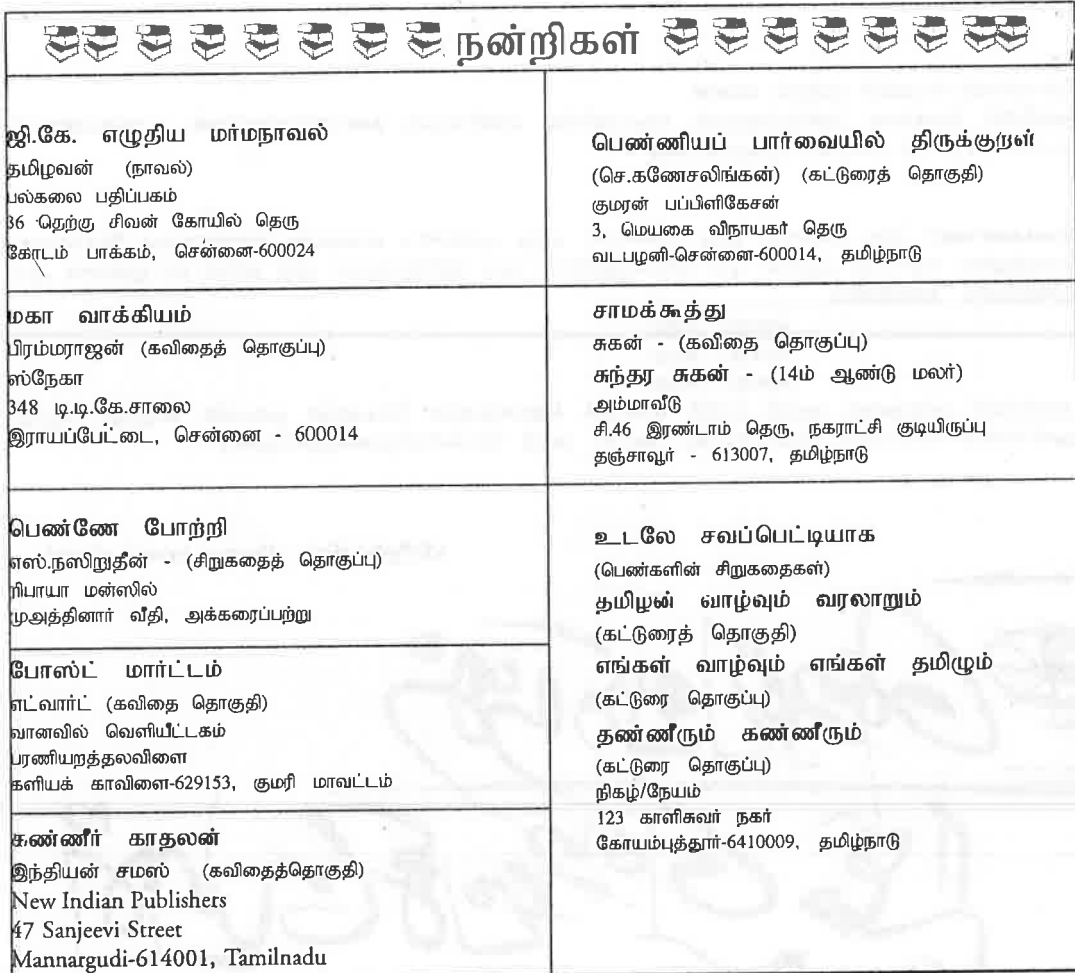 நன்றிகள்
ஜி.கே. எழுதிய மர்மநாவல்
தமிழவன் (நாவல்)
பல்கலை பதிப்பகம்
36 தெற்கு சிவன் கோயில் தெரு
கோடம் பாக்கம், சென்னை-600024
மகா வாக்கியம்
பிரம்மராஜன் (கவிதைத் தொகுப்பு)
ஸ்நேகா
348 டி.டி.கே.சாலை
இராயப்பேட்டை, சென்னை - 600014
பெண்ணே போற்றி
எஸ்.நஸிறுதீன் - (சிறுகதைத் தொகுப்பு)
றிபாயா மன்ஸில்
முஅத்தினார் வீதி, அக்கரைப்பற்று
போஸ்ட் மார்ட்டம்
எட்வார்ட் (கவிதை தொகுதி)
வானவில் வெளியீட்டகம்
பரணியறத்தலவிளை
களியக் காவிளை-629153, குமரி மாவட்டம்
கண்ணீர் காதலன்
இந்தியன் சமஸ் (கவிதைத்தொகுதி)
New Indian Publishers
47 Sanjeevi Street
Mannargudi-614001, Tamilnadu
பெண்ணியப் பார்வையில் திருக்குறள்
(செ.கணேசலிங்கன்) (கட்டுரைத் தொகுதி)
குமரன் பப்பிளிகேசன்
3, மெயகை விநாயகர் தெரு
வடபழனி-சென்னை-600014, தமிழ்நாடு
சாமக்கூத்து
சுகன் - (கவிதை தொகுப்பு)
சுந்தர சுகன் - (14ம் ஆண்டு மலர்)
அம்மாவீடு
சி.46 இரண்டாம் தெரு, நகராட்சி குடியிருப்பு
தஞ்சாவூர் - 613007, தமிழ்நாடு
உடலே சவப்பெட்டியாக
(பெண்களின் சிறுகதைகள்)
தமிழன் வாழ்வும் வரலாறும்
(கட்டுரைத் தொகுதி)
எங்கள் வாழ்வும் எங்கள் தமிழும்
(கட்டுரை தொகுப்பு)
தண்ணீரும் கண்ணீரும்
(கட்டுரை தொகுப்பு)
நிகழ்/நேயம்
123 காளிசுவர் நகர்
கோயம்புத்தூர்-6410009, தமிழ்நாடு